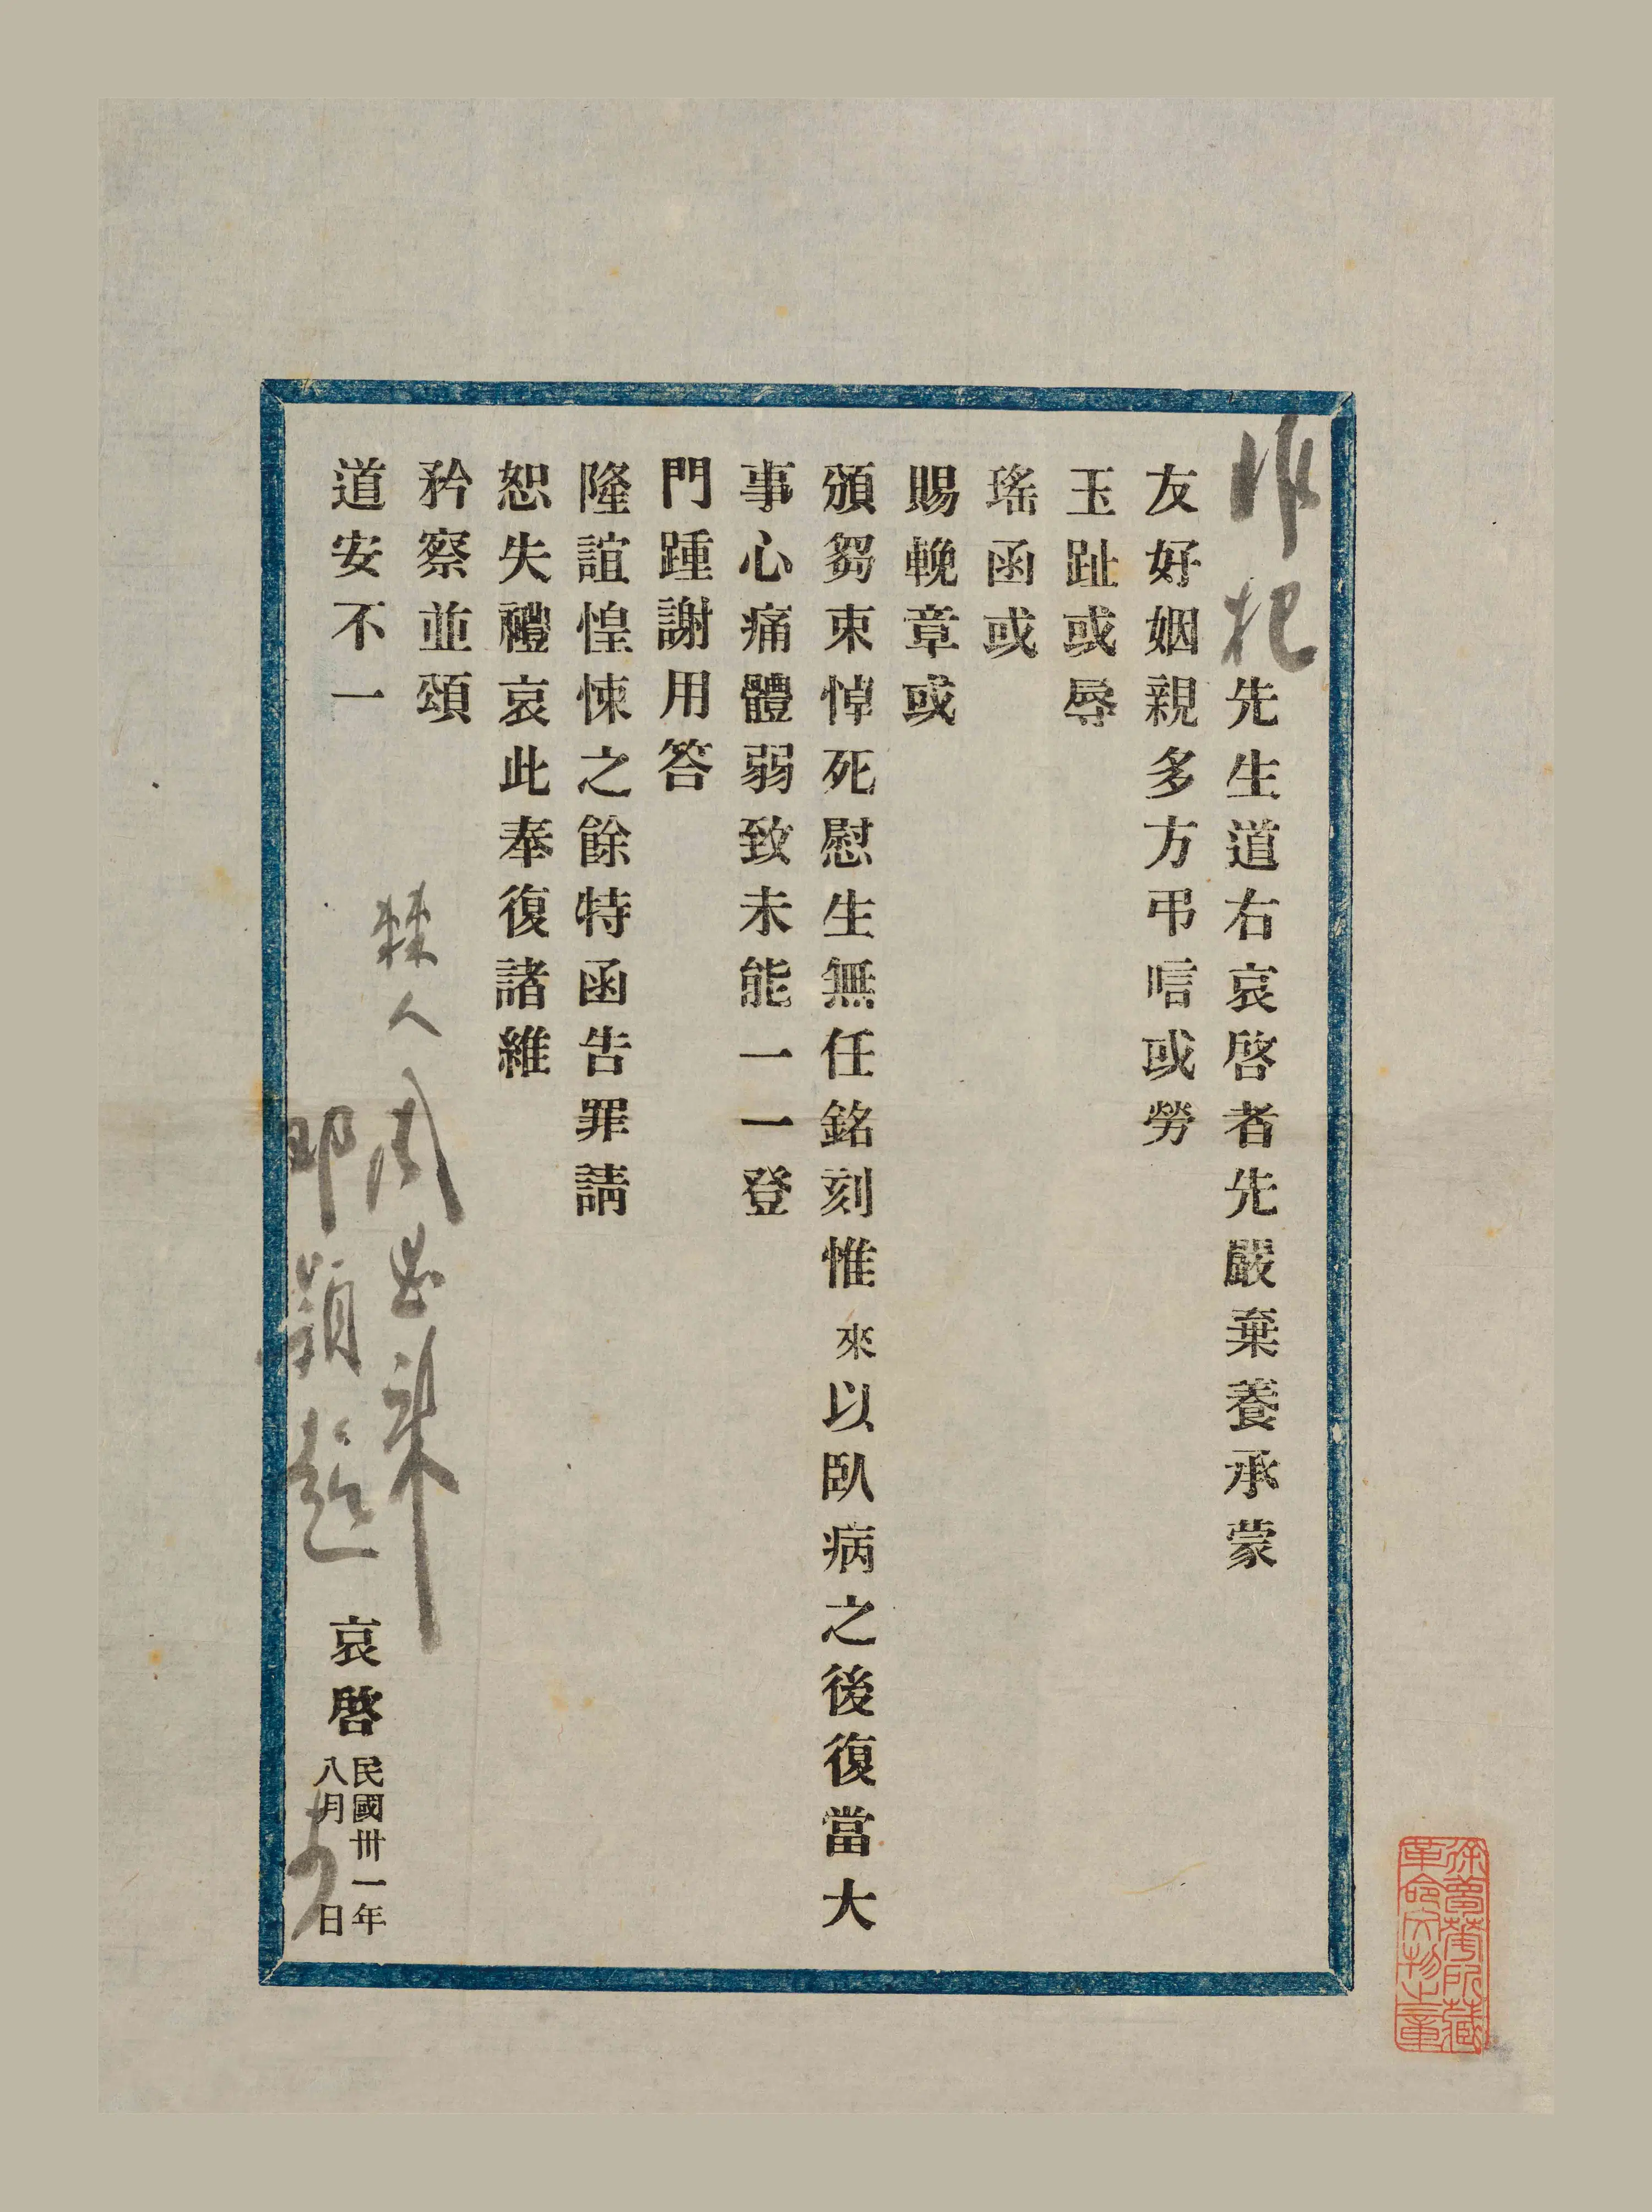 冰杞先生道右哀啓者先嚴棄養承蒙
友好姻親多方弔唁或勞
玉趾或辱
瑤函或
賜輓章或
頒芻束悼死慰生無任銘刻惟來以臥病之後復當大
事心痛體弱致未能一一登
門踵謝用答
隆誼惶悚之餘特函告罪請
恕失禮哀此奉復諸維
矜察並頌
道安不一
棘人周恩來
鄧穎超
哀啓
民國卅一年
八月 日
徐曾蔭所藏
革命文物之章